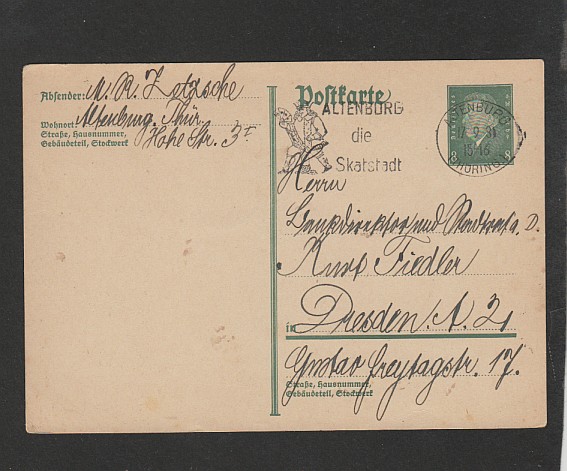 Postkarte
Absender: M. R. Zetzsche
Wohnort: Altenburg, Thür.
Straße, Hausnummer, Hohe Str. 3 I
Gebäudeteil, Stockwerk
ALTENBURG
die
Skatstadt
ALTENBURG
9 31
15-16
(THÜRINGEN)
Herrn
Bankdirektor und Stadtrat a. D.
Kurt Fiedler
in Dresden. A. 21
Gustav Freytagstr. 17.
Straße, Hausnummer,
Gebäudeteil, Stockwerk